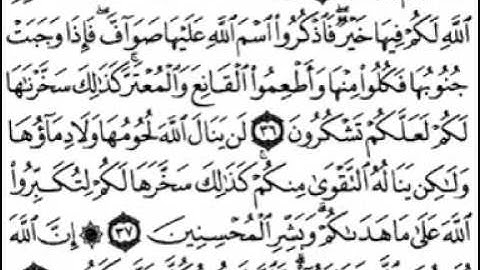 ٱللَّهِ لَكُمْ فِيهَا خَيْرٌ ۖ فَٱذْكُرُوا۟ ٱسْمَ ٱللَّهِ عَلَيْهَا صَوَآفَّ ۖ فَإِذَا وَجَبَتْ
جُنُوبُهَا فَكُلُوا۟ مِنْهَا وَأَطْعِمُوا۟ ٱلْقَانِعَ وَٱلْمُعْتَرَّ ۚ كَذَٰلِكَ سَخَّرْنَٰهَا
لَكُمْ لَعَلَّكُمْ تَشْكُرُونَ ٣٦ لَن يَنَالَ ٱللَّهَ لُحُومُهَا وَلَا دِمَآؤُهَا
وَلَٰكِن يَنَالُهُ ٱلتَّقْوَىٰ مِنكُمْ ۚ كَذَٰلِكَ سَخَّرَهَا لَكُمْ لِتُكَبِّرُوا۟
ٱللَّهَ عَلَىٰ مَا هَدَىٰكُمْ ۗ وَبَشِّرِ ٱلْمُحْسِنِينَ ٣٧ ۞ إِنَّ ٱللَّهَ